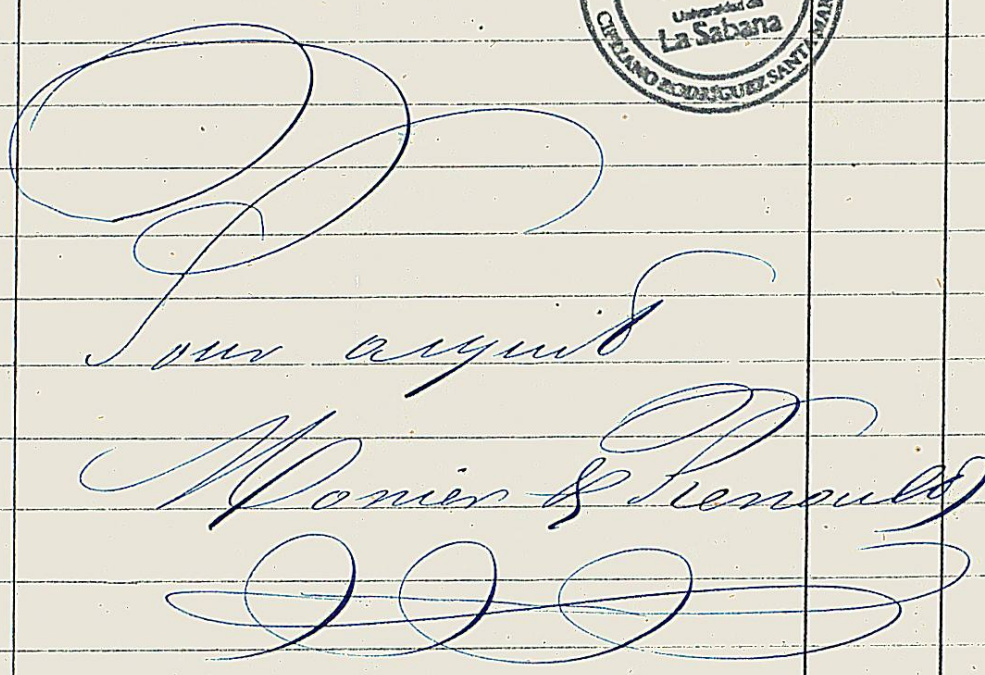 Universidad de
La Sabana
CIPRIANO RODRÍGUEZ SANTAMAR
Pour acquit
Monier & Renould